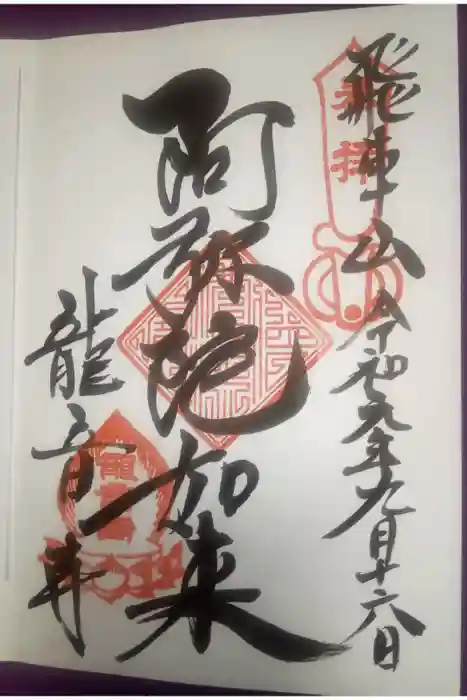 奉拝
飛車山 令和元年九月十六日
阿弥陀如来
龍音寺